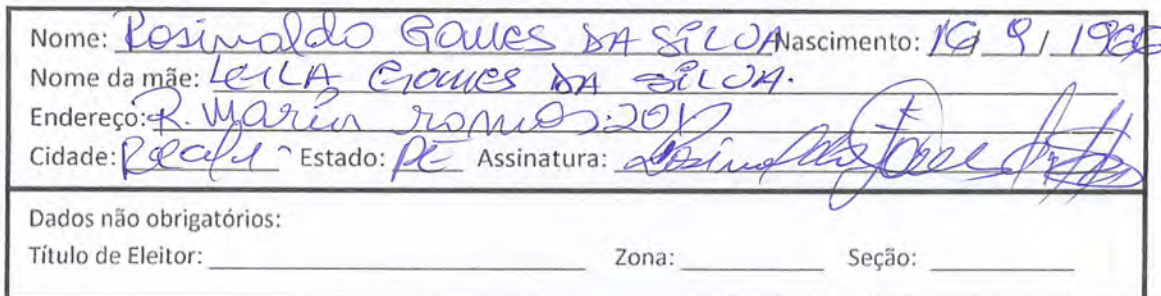 Nome: Rosinaldo Gomes DA SILVA Nascimento: 16/9/1966
Nome da mãe: LEILA Gomes DA SILVA.
Endereço: R. Maria ramos 201
Cidade: Recife Estado: PE Assinatura:
Dados não obrigatórios:
Título de Eleitor: Zona: Seção: